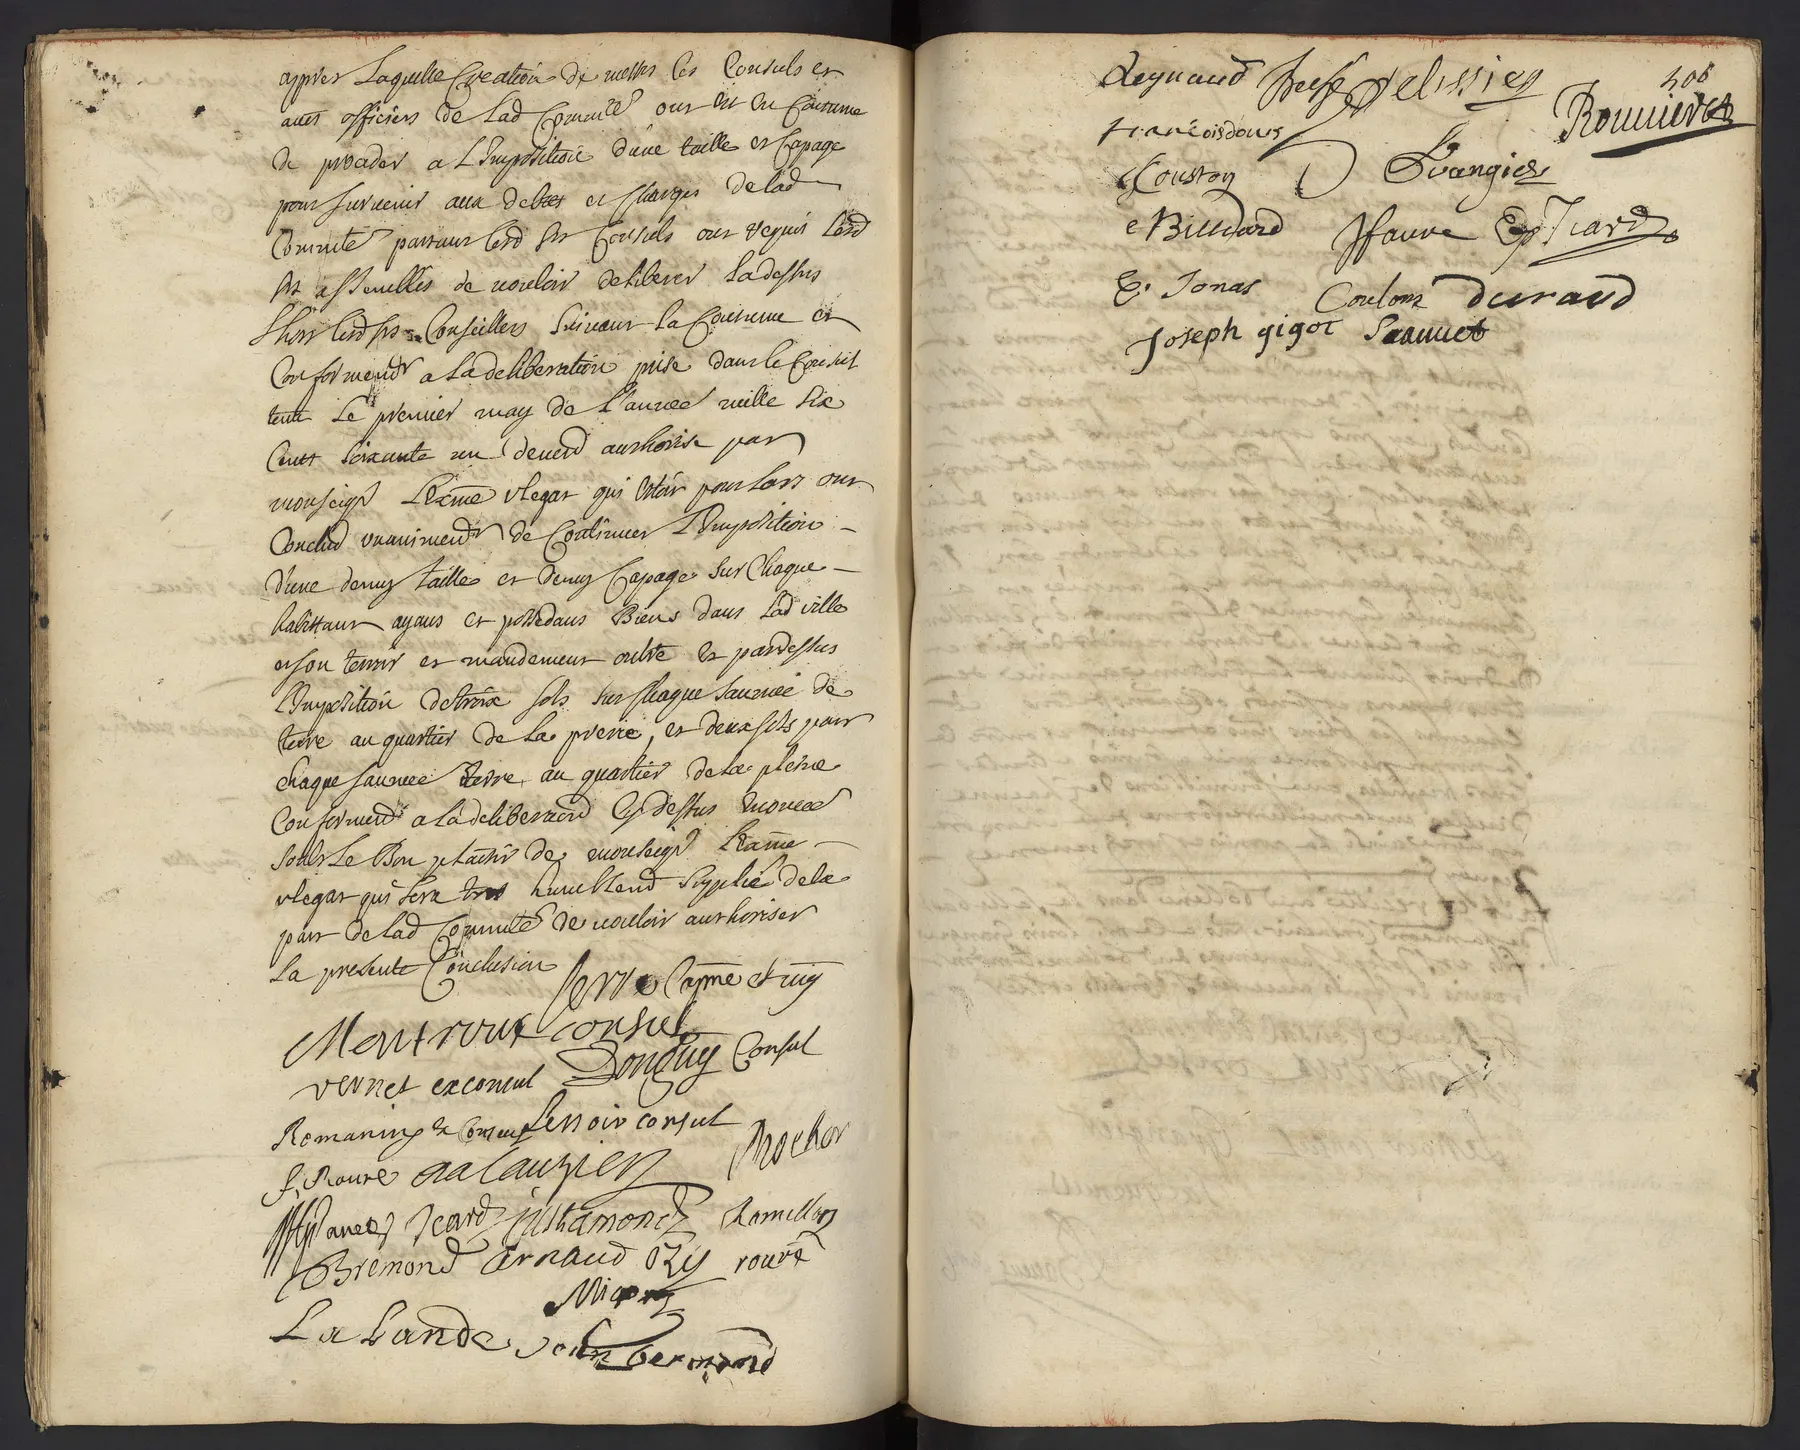 appres Laquelle Creation de messrs les Consuls et
auts officiers de Lad Commte ont dit en Coutume
de proceder a L'Imposition d'une taille et Capage
pour survenir aux debtes et Charges de lad
Commte partant lesd srs Consuls ont requis lesd
srs assembles de vouloir deliberer La dessus
Lhors lesd srs Conseillers suivant la Coutume et
Conformendt a La deliberation prise dans le Conseil
tenu Le premier may de l'année mille six
Cents soixante un deuemd authorise par
monseigr L'Exme vlegat qui estoit pour Lors ont
Conclud unanimendt de Continuer L'Imposition
d'une demy taille et demy Capage sur Chaque
habittant ayans et possedans Biens dans Lad ville
et son terroir et mandement oultre et pardessus
L'Imposition de trois sols sur chaque saumee de
terre au quartier de La preire, et deux sols pour
chaque saumee terre au quartier de La pleine
Conformend a La deliberaond Cy dessus enoncee
soubs Le Bon plaisir de monseigr L'Exme
vlegat qui sera tres humblemd supplié de la
part de Lad Commte de vouloir authoriser
La presente Conclusion
Serre Capne et vig
Montroux consul
vernet exconsul Donguy Consul
Romanin ex Consul Lenoir consul
J. Roure Rochor
Icard justamond Ramillon
Bremond Arnaud Ozy roure
La Lande Bermond
406
Reynaud Pelissier
Roumieres
francoisdours
Couston Evangier
Billiard ffaure Icard
E. Jonas Coulomb durand
Joseph gigot